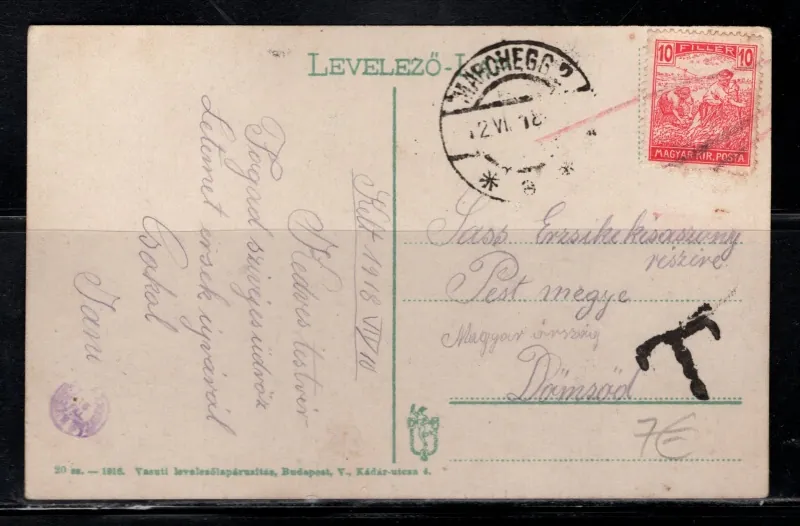 LEVELEZŐ-L
MARCHEGG 2
12 VI. 18
10 FILLER 10
MAGYAR KIR. POSTA
Kelt 1918 VII/10
Kedves testvér
Fogad szivéjes üdvöz
Letemet
Csokol
Jani
Sass Erzsike kisaszony
részére
Pest megye
Magyar órszág
Dömsöd
T
7€
20 sz. — 1916. Vasuti levelezőlapárusitás, Budapest, V., Kádár-utcza 4.